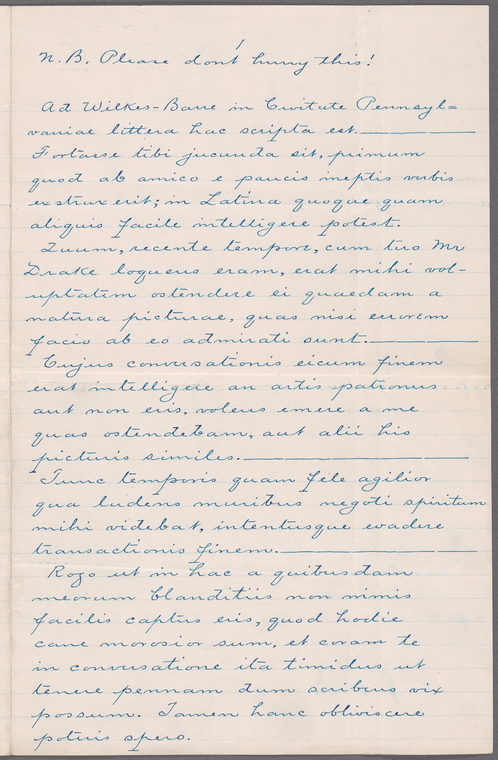 N.B. Please don't hurry this!
Ad Wilkes-Barre in Civitate Pennsyl=
vaniae littera hac scripta est.
Fortasse tibi jucunda sit, primum
quod ab amico e paucis ineptis verbis
exstruxerit; in Latina quoque quam
aliquis facile intelligere potest.
Quum, recente tempore, cum tuo Mr
Drake loquens eram, erat mihi vol-
uptatem ostendere ei quaedam a
natura picturae, quas nisi errorem
facio ab eo admirati sunt.
Cujus conversationis eicum finem
erat intelligere an artis patronus
aut non eris, volens emere a me
quas ostendebam, aut alii his
picturis similes.
Tunc temporis quam fele agilior
qua ludens muribus negoti spiritum
mihi videbat, intentusque evadere
transactionis finem.
Rogo ut in hac a quibusdam
meorum blanditiis non nimis
facilis captus eris, quod hodie
cane morosior sum, et coram te
in conversatione ita timidus ut
tenere pennam dum scribens vix
possum. Tamen hanc obliviscere
poteris spero.